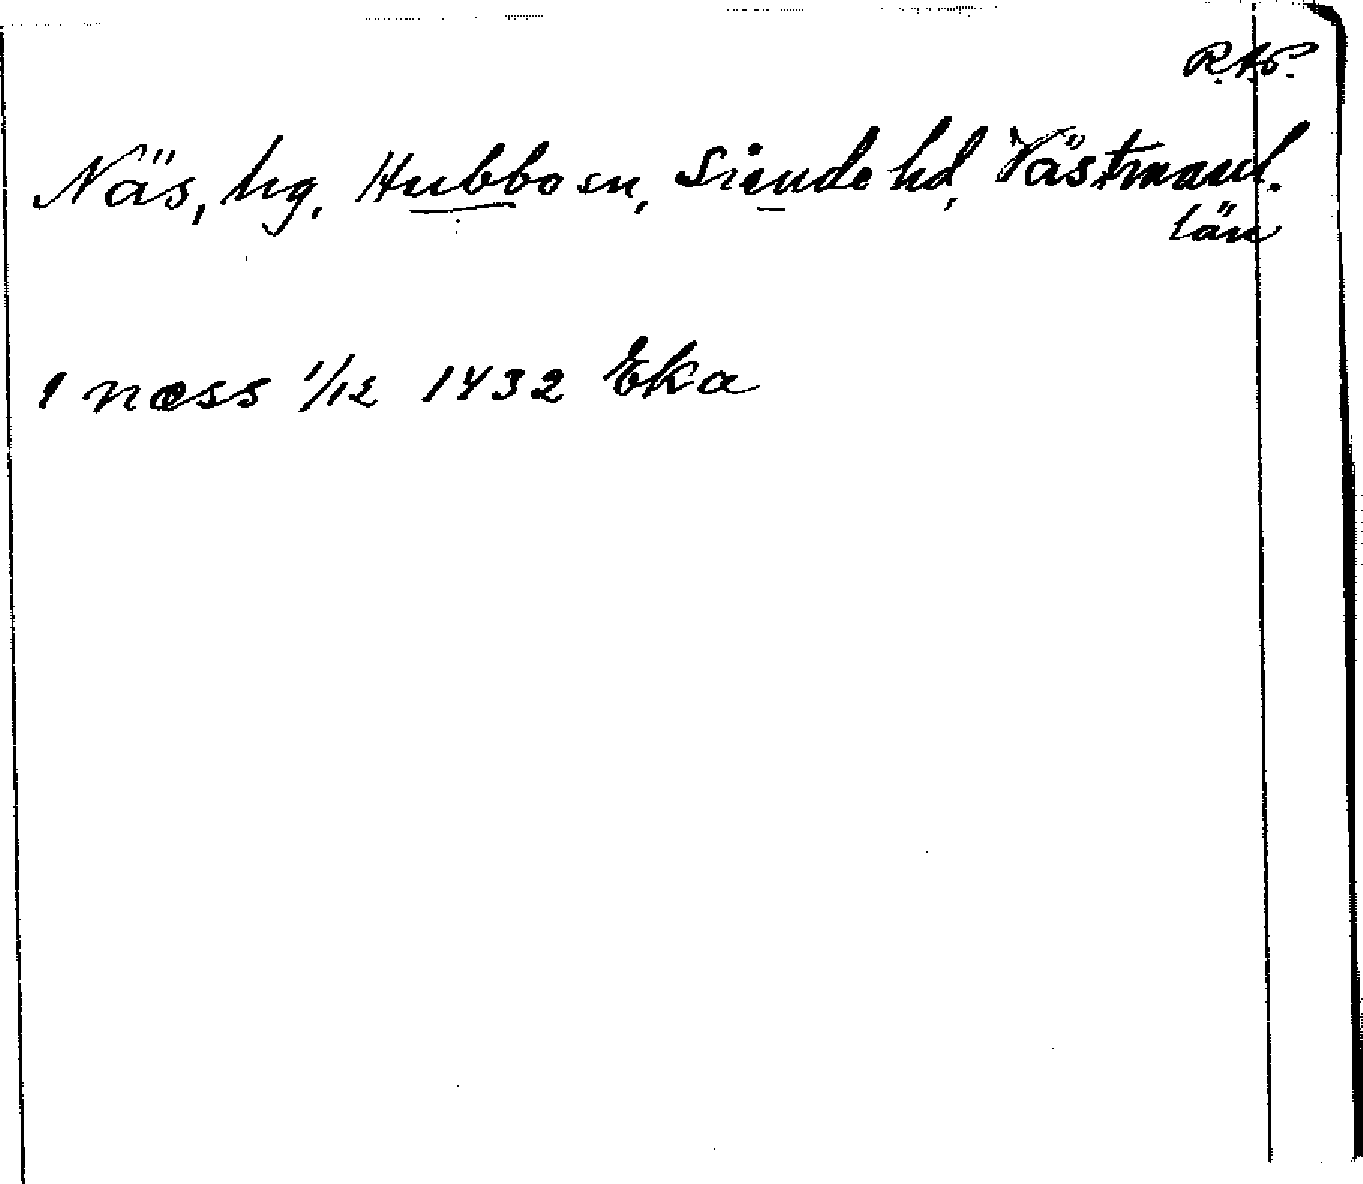 R.A.P.
Näs, hg, Hubbo sn, Siende hd, Västmanl.
län
I næss 1/12 1432 Eka